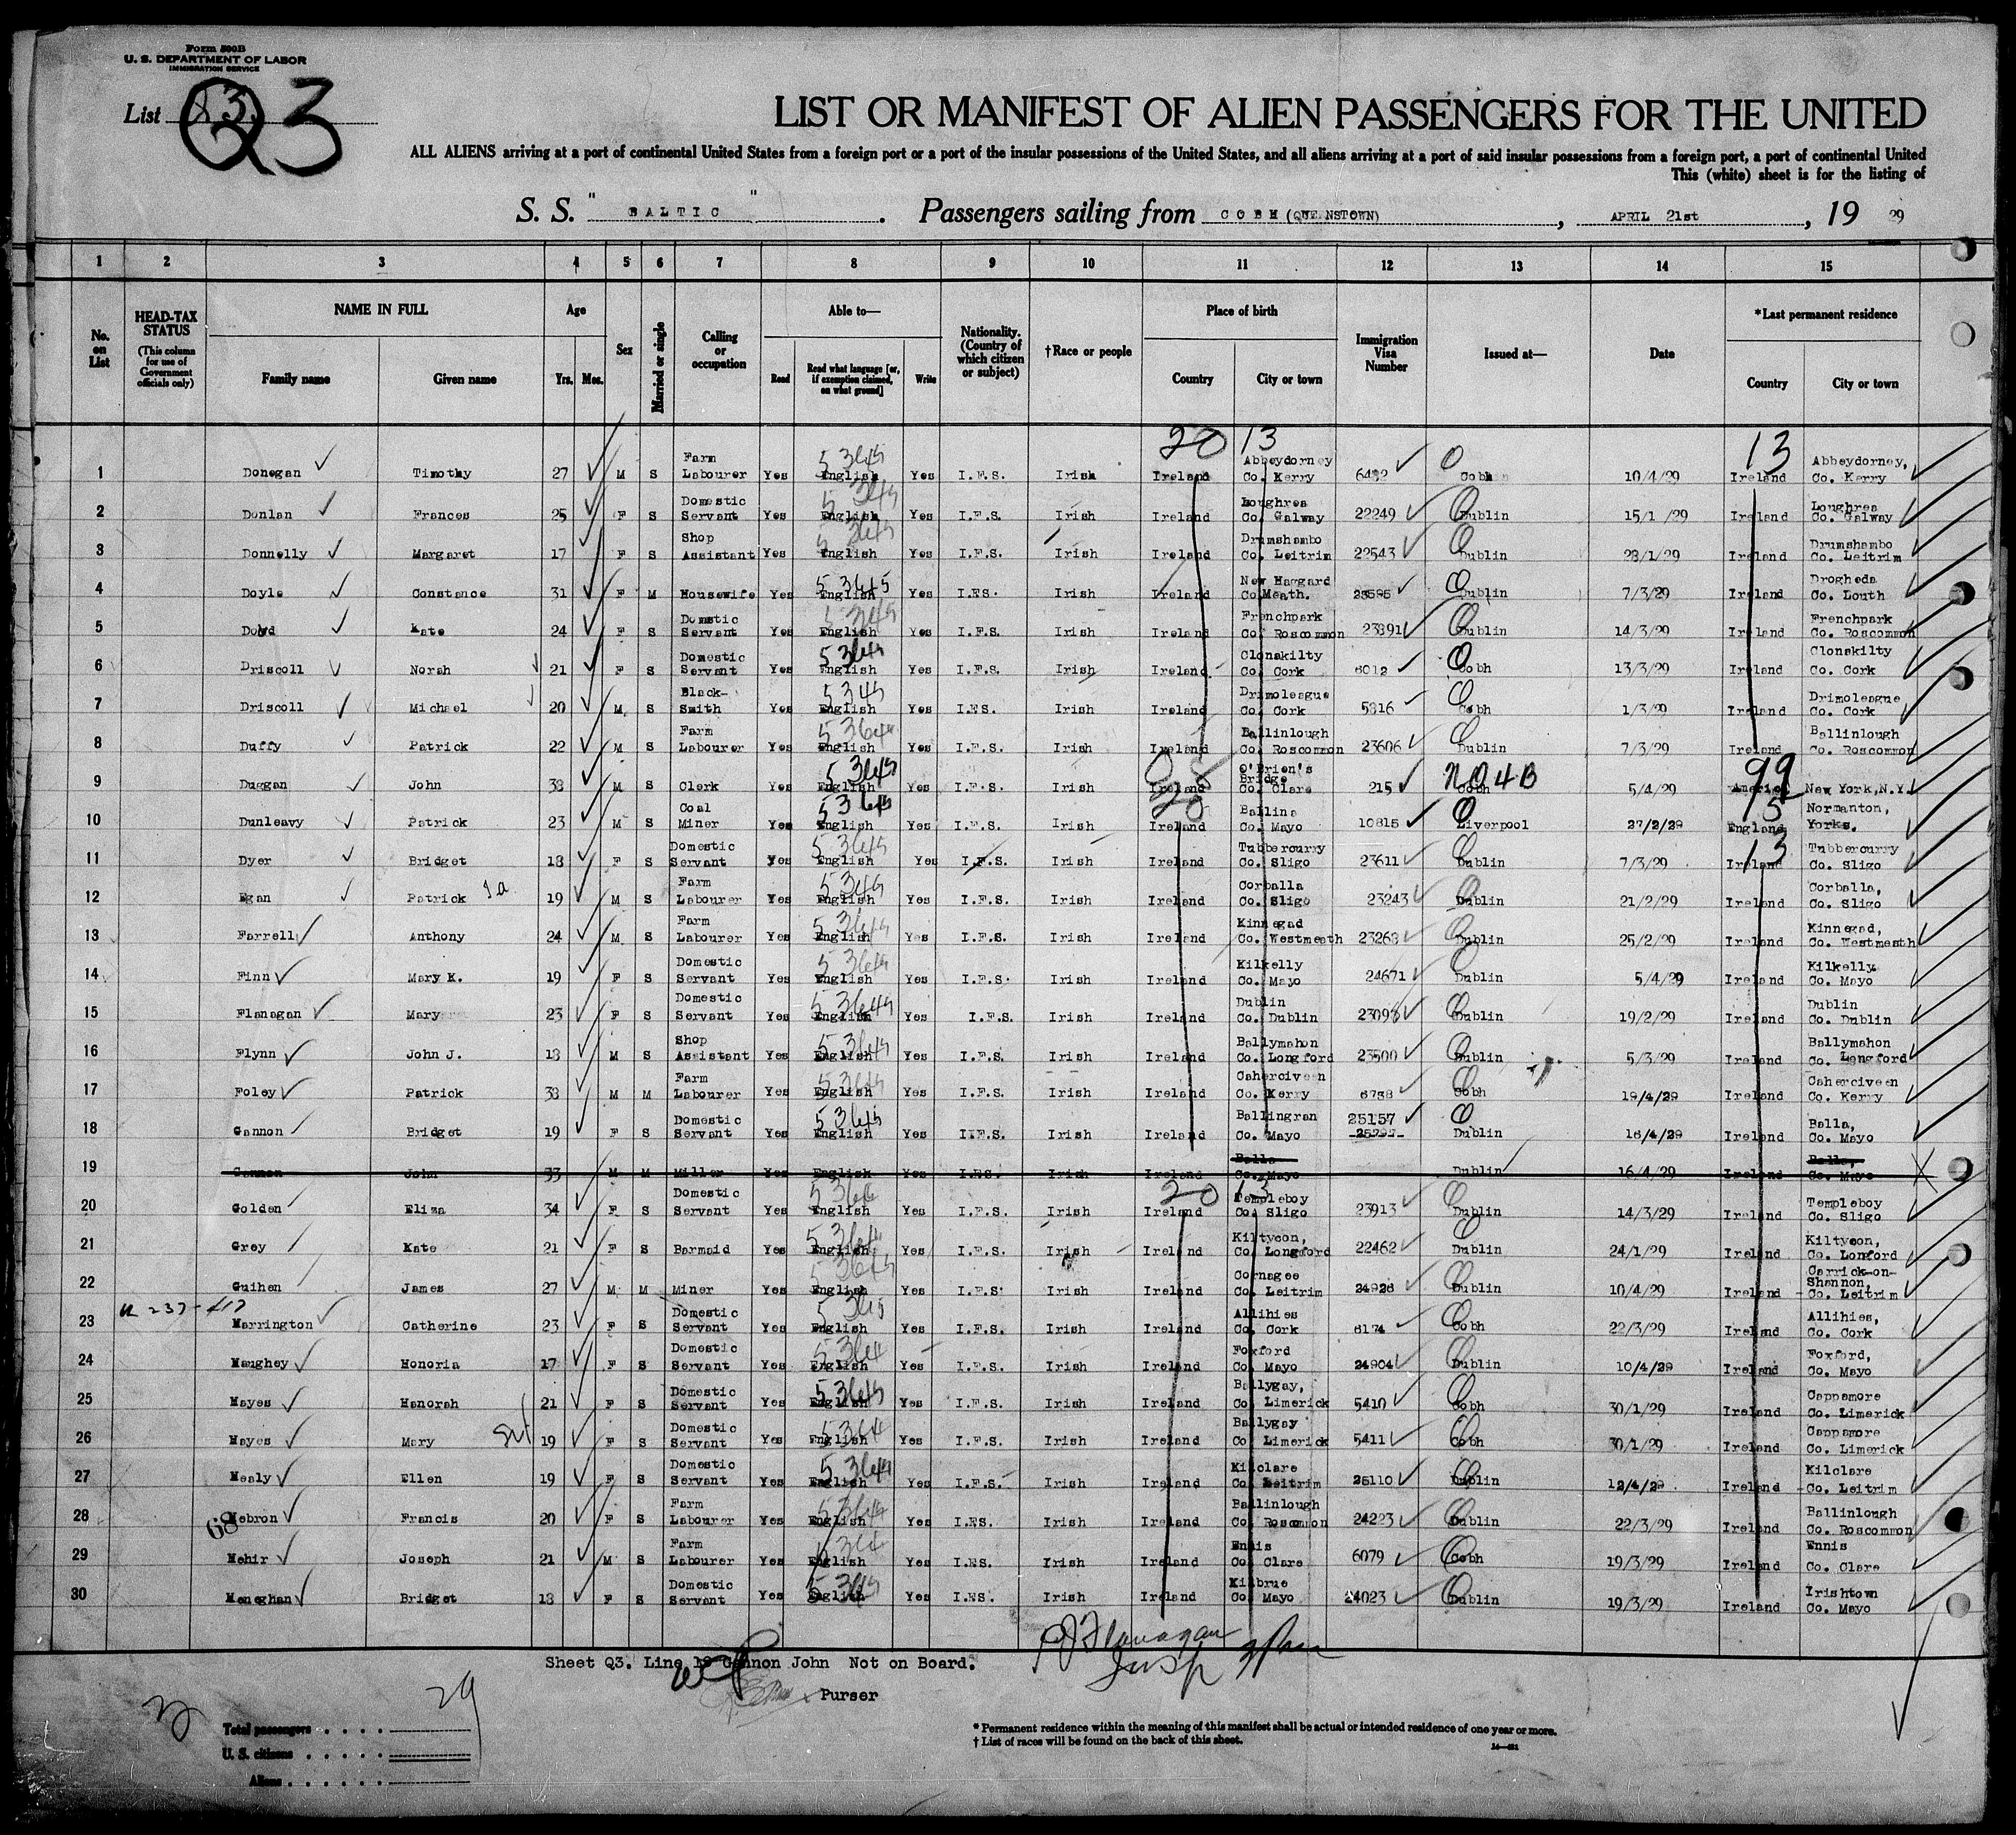 Form 500B
U. S. DEPARTMENT OF LABOR
IMMIGRATION SERVICE
List Q3
LIST OR MANIFEST OF ALIEN PASSENGERS FOR THE UNITED
ALL ALIENS arriving at a port of continental United States from a foreign port or a port of the insular possessions of the United States, and all aliens arriving at a port of said insular possessions from a foreign port, a port of continental United
This (white) sheet is for the listing of
S. S. " BALTIC " . Passengers sailing from COBH (QUEENSTOWN) , APRIL 21st , 19 29
1 2 3 4 5 6 7 8 9 10 11 12 13 14 15
No. on List
HEAD-TAX STATUS (This column for use of Government officials only)
NAME IN FULL Family name Given name
Age Yrs. Mos.
Sex
Married or single
Calling or occupation
Able to— Read Read what language [or, if exemption claimed, on what ground] Write
Nationality. (Country of which citizen or subject)
†Race or people
Place of birth Country City or town
Immigration Visa Number
Issued at—
Date
*Last permanent residence Country City or town
20 13 13
1 Donegan Timothy 27 M S Farm Labourer Yes English Yes I.F.S. Irish Ireland Abbeydorney Co. Kerry 6482 Cobh 10/4/29 Ireland Abbeydorney, Co. Kerry
2 Donlan Frances 25 F S Domestic Servant Yes English Yes I.F.S. Irish Ireland Loughrea Co. Galway 22249 Dublin 15/1/29 Ireland Loughrea Co. Galway
3 Donnelly Margaret 17 F S Shop Assistant Yes English Yes I.F.S. Irish Ireland Drumshambo Co. Leitrim 22543 Dublin 28/1/29 Ireland Drumshambo Co. Leitrim
4 Doyle Constance 31 F M Housewife Yes English Yes I.FS. Irish Ireland New Haggard Co Meath. 23595 Dublin 7/3/29 Ireland Drogheda Co. Louth
5 Kate 24 F S Domstic Servant Yes English Yes I.F.S. Irish Ireland Frenchpark Co. Roscommon 23891 Dublin 14/3/29 Ireland Frenchpark Co. Roscommon
6 Driscoll Norah 21 F S Domestic Servant Yes English Yes I.F.S. Irish Ireland Clonakilty Co. Cork 6012 Cobh 13/3/29 Ireland Clonakilty Co. Cork
7 Driscoll Michael 20 M S Black-Smith Yes English Yes I.FS. Irish Ireland Drimoleague Co. Cork 5816 Cobh 1/3/29 Ireland Drimoleague Co. Cork
8 Duffy Patrick 22 M S Farm Labourer Yes English Yes I.F.S. Irish Ireland Ballinlough Co. Roscommon 23606 Dublin 7/3/29 Ireland Ballinlough Co. Roscommon
9 Duggan John 38 M S Clerk Yes English Yes I.F.S. Irish Ireland O'Brien's Bridge Co. Clare 215 NQ4B Cobh 5/4/29 99 America New York, N.Y.
10 Dunleavy Patrick 23 M S Coal Miner Yes English Yes I.F.S. Irish Ireland Ballina Co. Mayo 10815 Liverpool 27/2/29 England Normanton, Yorks.
11 Dyer Bridget 18 F S Domestic Servant Yes English Yes I.F.S. Irish Ireland Tubbercurry Co. Sligo 23611 Dublin 7/3/29 13 Ireland Tubbercurry Co. Sligo
12 Egan Patrick 19 M S Farm Labourer Yes English Yes I.F.S. Irish Ireland Corballa Co. Sligo 23243 Dublin 21/2/29 Ireland Corballa, Co. Sligo
13 Farrell Anthony 24 M S Farm Labourer Yes English Yes I.F.S. Irish Ireland Kinnegad Co. Westmeath 23268 Dublin 25/2/29 Ireland Kinnegad, Co. Westmeath
14 Finn Mary K. 19 F S Domestic Servant Yes English Yes I.F.S. Irish Ireland Kilkelly Co. Mayo 24671 Dublin 5/4/29 Ireland Kilkelly Co. Mayo
15 Flanagan Mary 23 F S Domestic Servant Yes English Yes I.F.S. Irish Ireland Dublin Co. Dublin 23098 Dublin 19/2/29 Ireland Dublin Co. Dublin
16 Flynn John J. 18 M S Shop Assistant Yes English Yes I.F.S. Irish Ireland Ballymahon Co. Longford 23500 Dublin 5/3/29 Ireland Ballymahon Co. Longford
17 Foley Patrick 38 M M Farm Labourer Yes English Yes I.F.S. Irish Ireland Caherciveen Co. Kerry 6738 Cobh 19/4/29 Ireland Caherciveen Co. Kerry
18 Gannon Bridget 19 F S Domestic Servant Yes English Yes I.F.S. Irish Ireland Ballingran Co. Mayo 25157 Dublin 16/4/29 Ireland Balla, Co. Mayo
19 Gannon John 33 M M Miller Yes English Yes I.FS. Irish Ireland Balla Co. Mayo Dublin 16/4/29 Ireland Balla, Co. Mayo
20 13
20 Golden Eliza 34 F S Domestic Servant Yes English Yes I.F.S. Irish Ireland Templeboy Co. Sligo 23913 Dublin 14/3/29 Ireland Templeboy Co. Sligo
21 Grey Kate 21 F S Barmaid Yes English Yes I.F.S. Irish Ireland Kiltycon, Co. Longford 22462 Dublin 24/1/29 Ireland Kiltycon, Co. Longford
22 Guihen James 27 M M Miner Yes English Yes I.F.S. Irish Ireland Cornagee Co. Leitrim 24926 Dublin 10/4/29 Ireland Carrick-on-Shannon, Co. Leitrim
23 Harrington Catherine 23 F S Domestic Servant Yes English Yes I.F.S. Irish Ireland Allihies Co. Cork 6174 Cobh 22/3/29 Ireland Allihies, Co. Cork
24 Haughey Honoria 17 F S Domestic Servant Yes English Yes I.F.S. Irish Ireland Foxford Co. Mayo 24904 Dublin 10/4/29 Ireland Foxford, Co. Mayo
25 Hayes Hanorah 21 F S Domestic Servant Yes English Yes I.F.S. Irish Ireland Ballygay, Co. Limerick 5410 Cobh 30/1/29 Ireland Cappamore Co. Limerick
26 Hayes Mary 19 F S Domestic Servant Yes English Yes I.F.S. Irish Ireland Ballygay Co. Limerick 5411 Cobh 30/1/29 Ireland Cappamore Co. Limerick
27 Healy Ellen 19 F S Domestic Servant Yes English Yes I.F.S. Irish Ireland Kilclare Co. Leitrim 25110 Dublin 12/4/29 Ireland Kilclare Co. Leitrim
28 68 Hebron Francis 20 F S Farm Labourer Yes English Yes I.FS. Irish Ireland Ballinlough Co. Roscommon 24223 Dublin 22/3/29 Ireland Ballinlough Co. Roscommon
29 Hehir Joseph 21 M S Farm Labourer Yes English Yes I.FS. Irish Ireland Ennis Co. Clare 6079 Cobh 19/3/29 Ireland Ennis Co. Clare
30 Heneghan Bridget 18 F S Domestic Servant Yes English Yes I.FS. Irish Ireland Kilbrue Co. Mayo 24023 Dublin 19/3/29 Ireland Irishtown Co. Mayo
Sheet Q3. Line 19 Gannon John Not on Board.
Purser
29
Total passengers
U. S. citizens
Aliens
* Permanent residence within the meaning of this manifest shall be actual or intended residence of one year or more.
† List of races will be found on the back of this sheet.